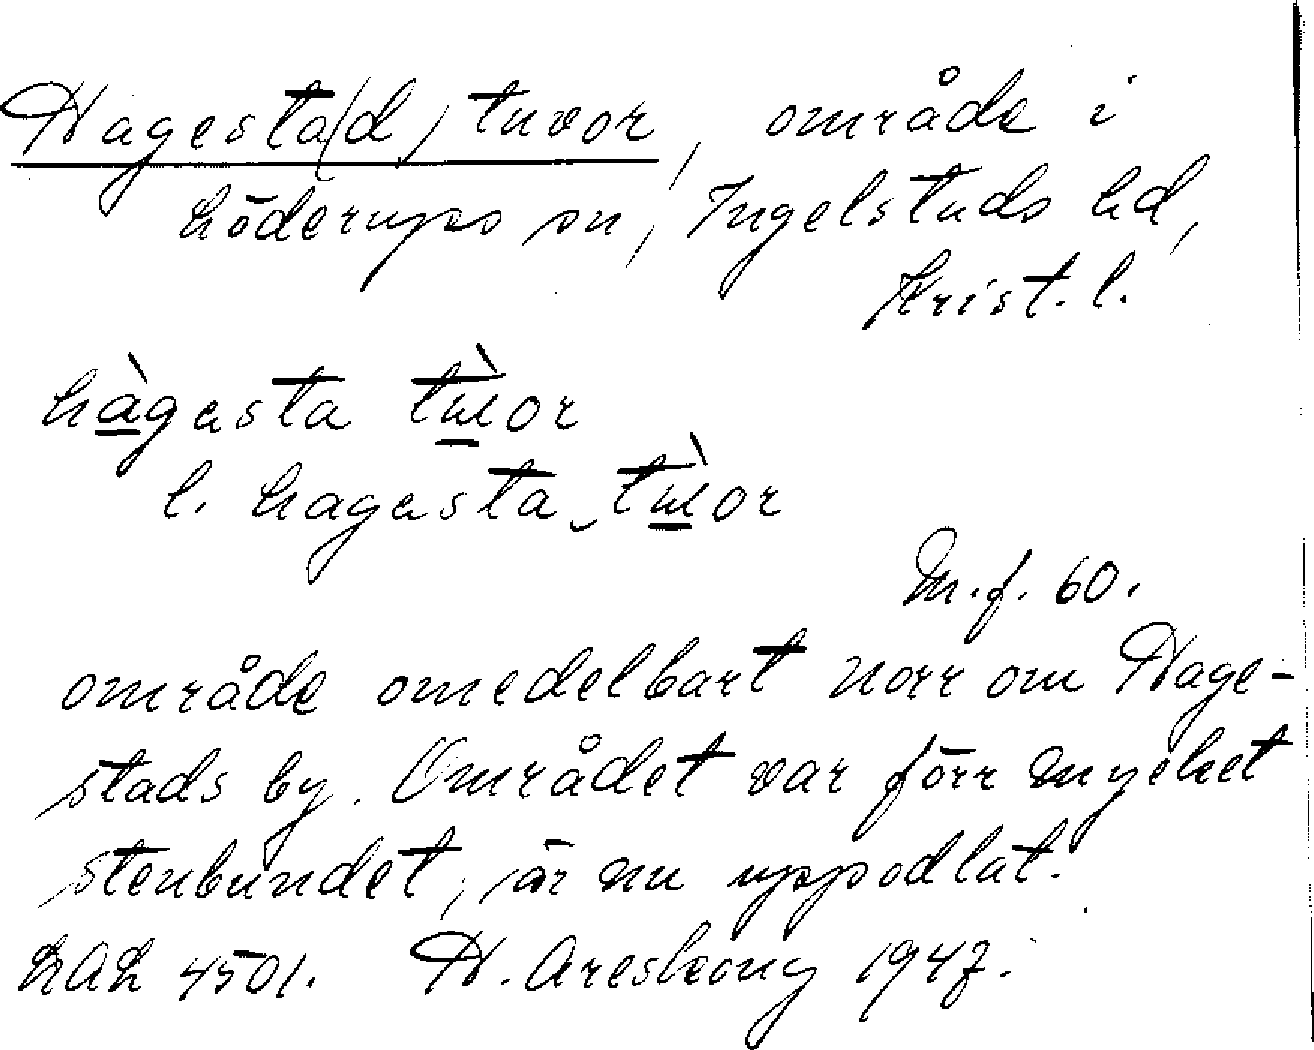 Hagesta(d) tuvor, område i
Löderups sn, Ingelstads hd,
Krist. l.
hàgesta tùor
l. hagesta tùor
M.f. 60.
område omedelbart norr om Hage-
stads by. Området var förr mycket
stenbundet, är nu uppodlat.
LAL 4501. H. Areskoug 1947.